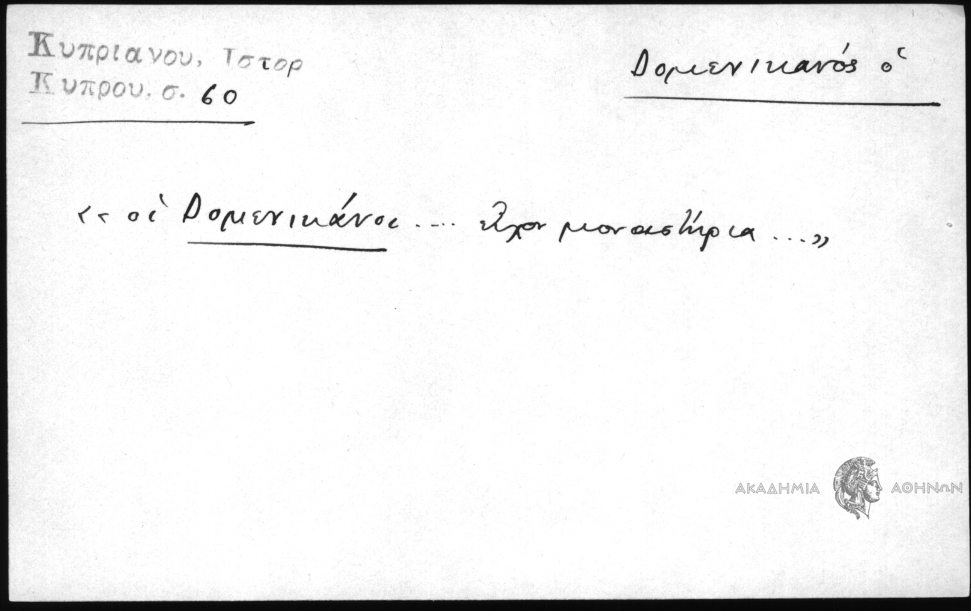 Κυπριανου, Ιστορ
Κυπρου. σ. 60
Δομενικανός ὁ
«οἱ Δομενικάνοι .... εἶχον μοναστήρια ...»
ΑΚΑΔΗΜΙΑ ΑΘΗΝΩΝ